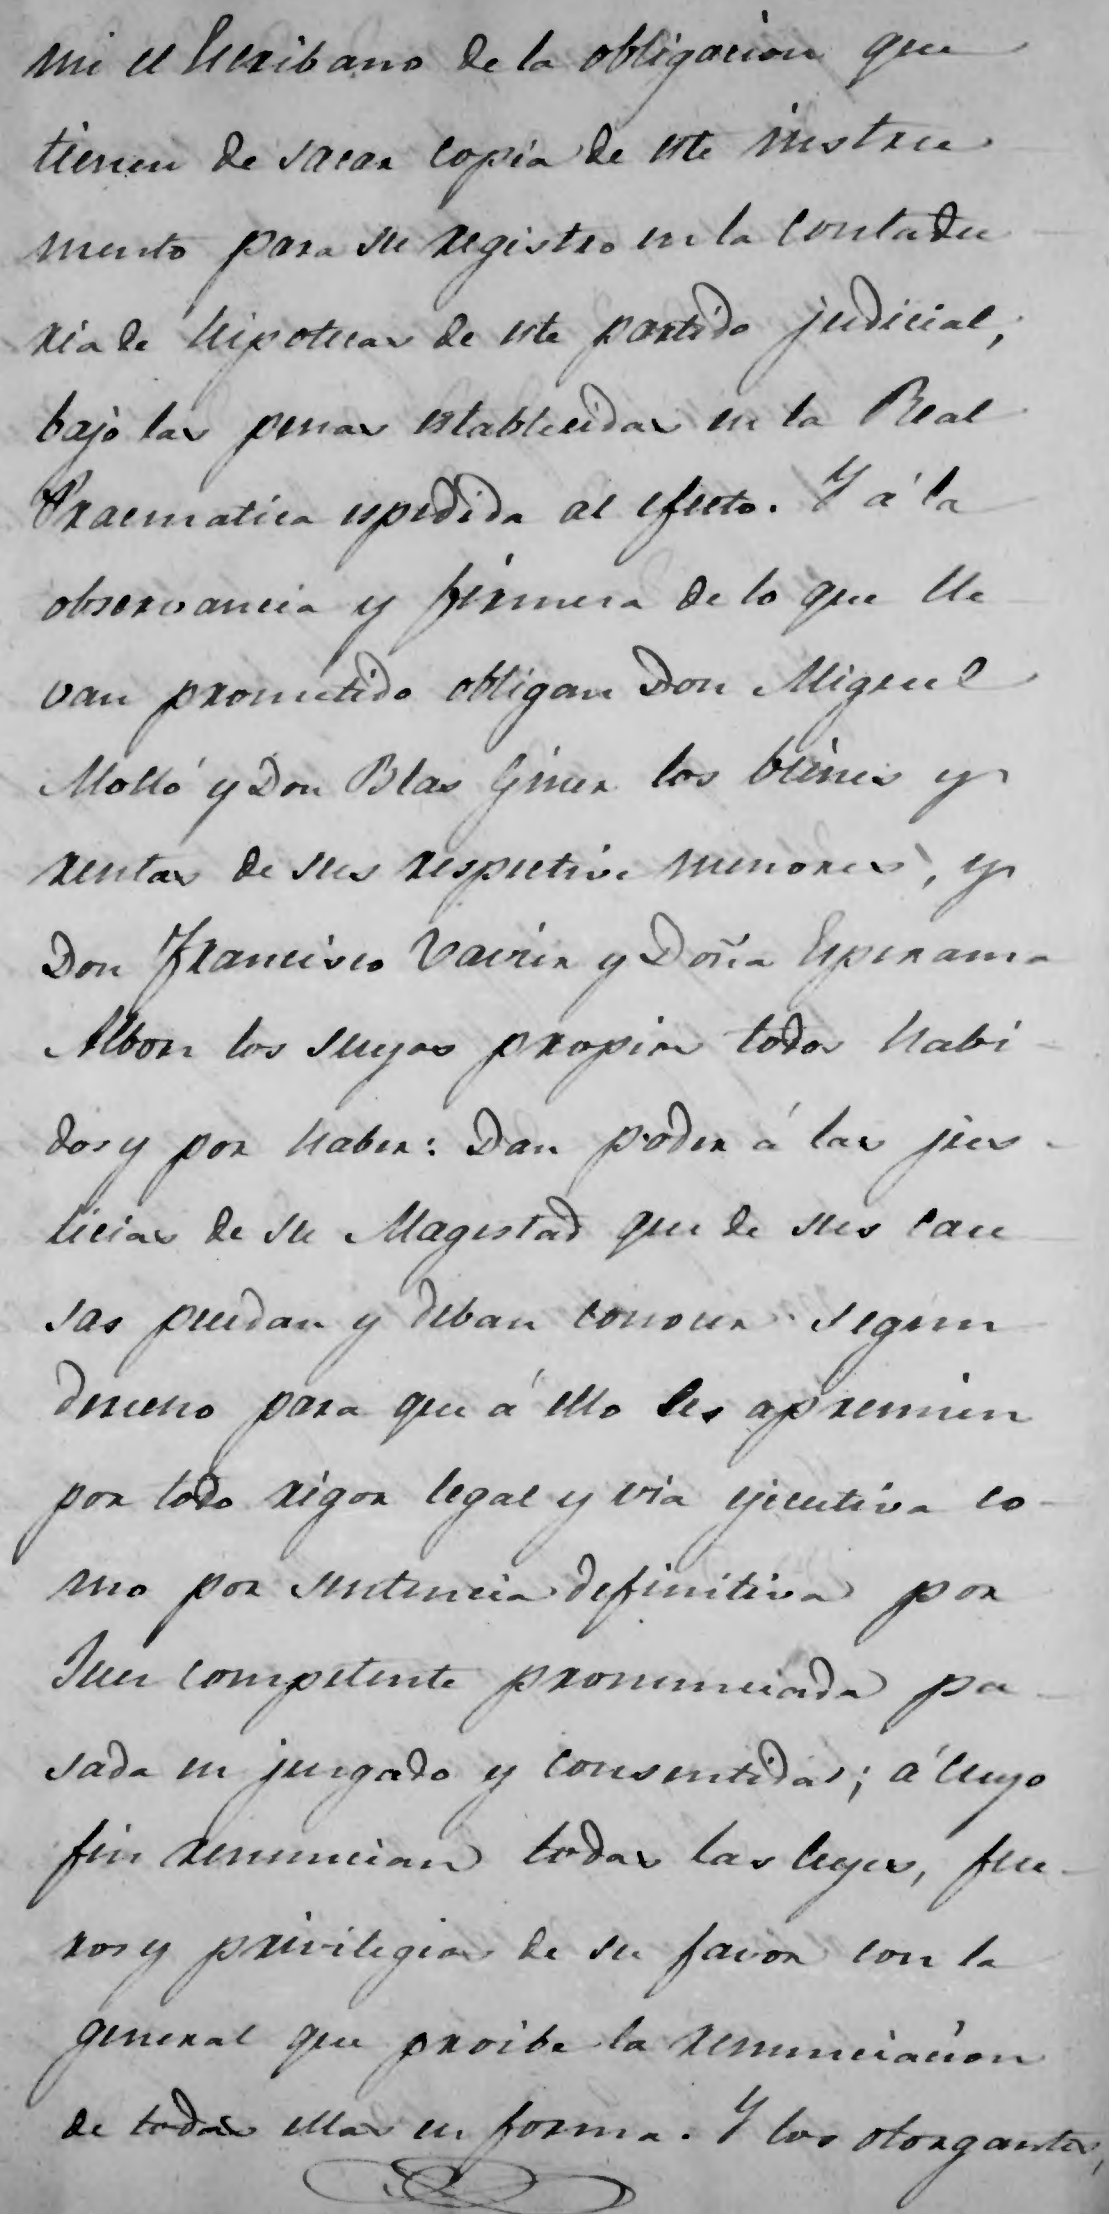 mi el Escribano de la obligacion que
tienen de sacar copia de este instru
mento para su registro en la Contadu
ria de hipotecas de este partido judicial,
bajo las penas establecidas en la Real
Pracmatica espedida al efecto. Y á la
observancia y firmeza de lo que lle
van prometido obligan Don Miguel
Molló y Don Blas Giner los bienes y
rentas de sus respective menores, y
Don Francisco y Doña Esperanza
Albors los suyos propios todos habi-
dos y por haber: Dan poder á las jus-
ticias de su Magestad que de sus cau
sas puedan y deban conocer segun
derecho para que á ello les apremien
por todo rigor legal y via ejecutiva co-
mo por sentencia definitiva por
Juez competente pronunciada pa-
sada en juzgado y consentida; á cuyo
fin renuncian todas las leyes, fue-
ros y privilegios de su favor con la
general que proibe la renunciacion
de todas ellas en forma. Y los otorgantes,